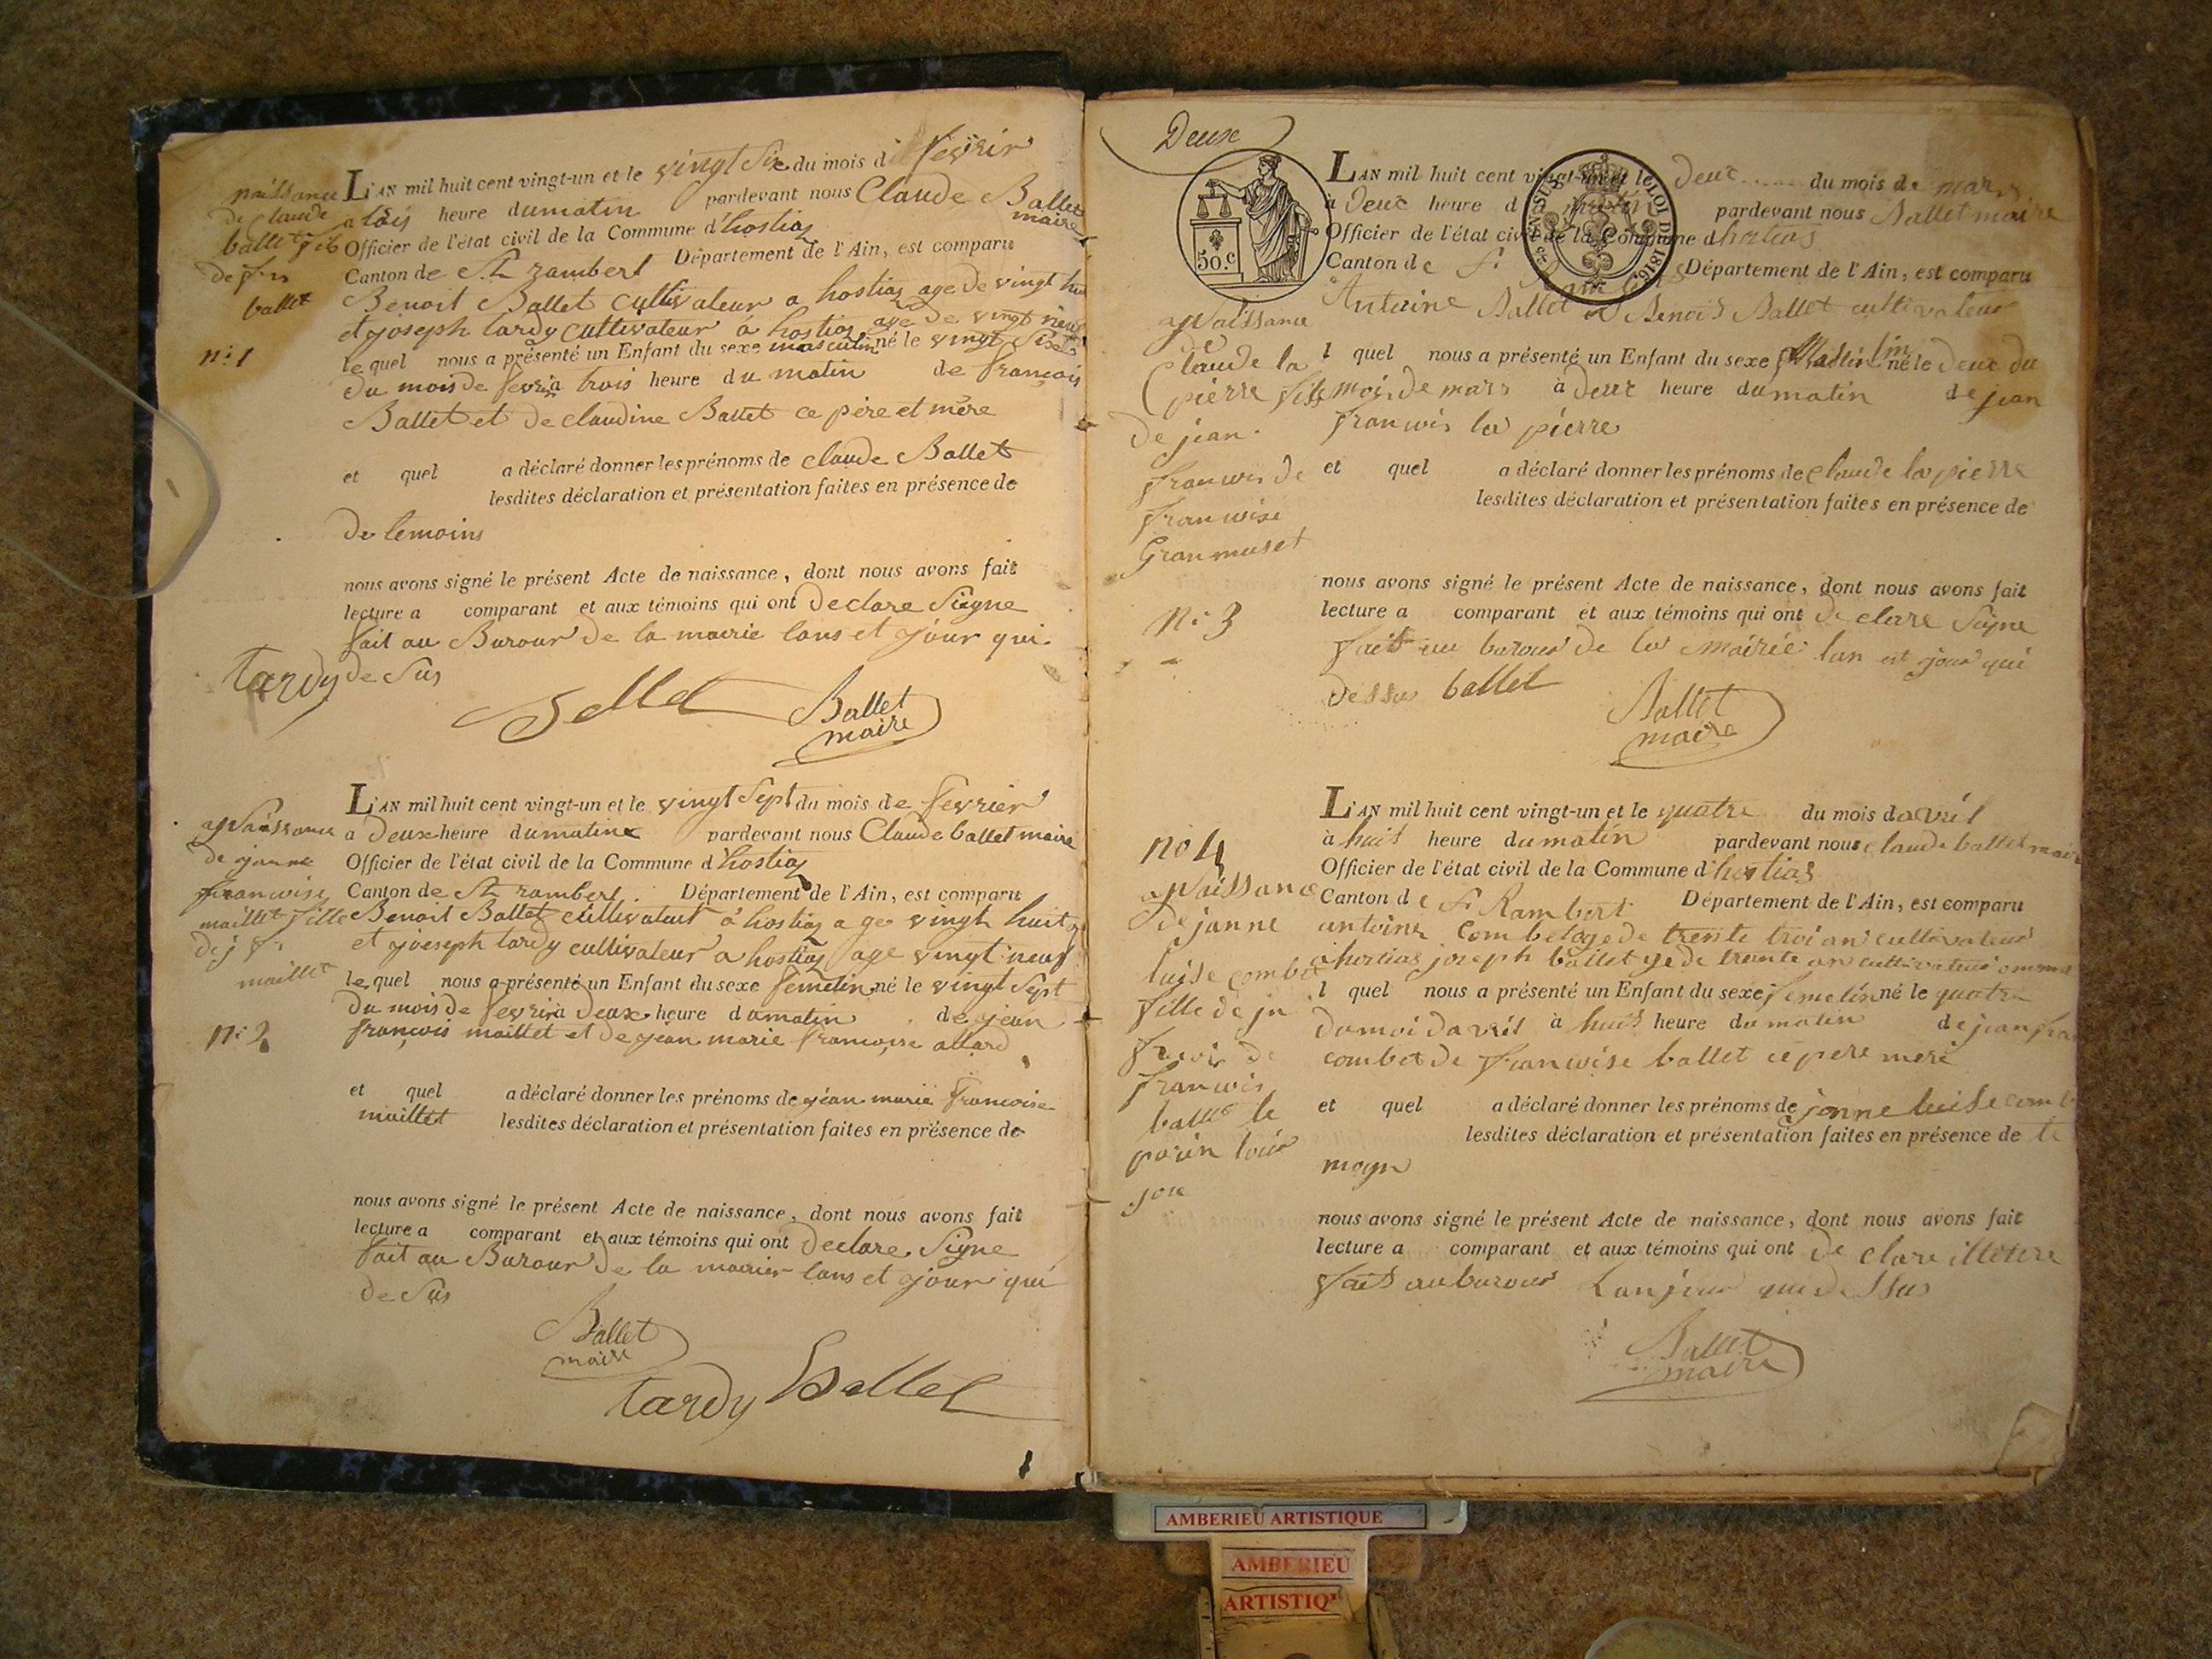 naissance
de Claude
ballet fils
de fr.s
ballet
n: 1
L'AN mil huit cent vingt-un et le vingt Six du mois d fevrir
a tois heure dumatin pardevant nous Claude Ballet
maire
Officier de l'état civil de la Commune d'hostiaz
Canton de St rambert Département de l'Ain, est comparu
Benoit Ballet cultivateur a hostiaz age de vingt hui
et joseph tardy cultivateur á hostiaz age de vingt neuf
le quel nous a présenté un Enfant du sexe masculin né le vingt Six
du mois de fevri a trois heure du matin de françois
Ballet et de claudine Ballet ce père et mère
et quel a déclaré donner les prénoms de claude Ballet
lesdites déclaration et présentation faites en présence de
de temoins
nous avons signé le présent Acte de naissance, dont nous avons fait
lecture a comparant et aux témoins qui ont Declare Signe
fait au Burour de la mairie lans et jour qui
de Sus
tardy Ballet Ballet
maire
naissance
de janne
francoise
maillet fille
de j
maillet
n: 2
L'AN mil huit cent vingt-un et le vingt Sept du mois de fevrier
a Deux heure dumatin pardevant nous Claude ballet maire
Officier de l'état civil de la Commune d'hostiaz
Canton de St rambert. Département de l'Ain, est comparu
Benoit Ballet cultivateur á hostiaz age vingt huit
et joeseph tardy cultivateur a hostiaz age vingt neuf
le quel nous a présenté un Enfant du sexe femelin né le vingt Sept
du mois de fevri a Deux heure dumatin de jean
françois maillet et de jéan marie francoise allard
et quel a déclaré donner les prénoms de jéan marie francoise
maillet lesdites déclaration et présentation faites en présence de
nous avons signé le présent Acte de naissance, dont nous avons fait
lecture a comparant et aux témoins qui ont Declare Signe
fait au Burour de la mairier lans et jour qui
de Sus
Ballet
maire
tardy Ballet
Deuxe
50.c
EN SUS
LOI DE 1816
naissance
de
Claude la
pierre fils
de jean
francois de
francoise
Granmuset
n: 3
L'AN mil huit cent vingt-un et le Deux du mois de mars
à Deux heure d matin pardevant nous Ballet maire
Officier de l'état civil de la Commune d hostias
Canton de St Rambert Département de l'Ain, est comparu
Antoine Ballet Benoit Ballet cultivateur
l quel nous a présenté un Enfant du sexe né le Deux du
mois de mars à Deux heure du matin de jean
francois la pierre
et quel a déclaré donner les prénoms de claude la pierre
lesdites déclaration et présentation faites en présence de
nous avons signé le présent Acte de naissance, dont nous avons fait
lecture a comparant et aux témoins qui ont de clare Signe
fait au burour de la mairie lan et jour qui
dessus ballet Ballet
maire
no 4
naissance
de janne
luise combet
fille de jn
frcois de
francois
ballet le
L'AN mil huit cent vingt-un et le quatre du mois davril
à huit heure du matin pardevant nous claude ballet maire
Officier de l'état civil de la Commune d'hostias
Canton de St Rambert Département de l'Ain, est comparu
antoine Combet age de trente troi an cultivateur
a hostias joseph ballet age de trante an cultivateur
l quel nous a présenté un Enfant du sexe femelin né le quatre
du moi davril à huit heure du matin de jean fra
combet de francoise ballet ce pere mere
et quel a déclaré donner les prénoms de janne luise comb
lesdites déclaration et présentation faites en présence de te
mogn
nous avons signé le présent Acte de naissance, dont nous avons fait
lecture a comparant et aux témoins qui ont de clare illetere
fait au burour Lan jour que dessus
Ballet
maire
AMBERIEU ARTISTIQUE
AMBERIEU
ARTISTIQ